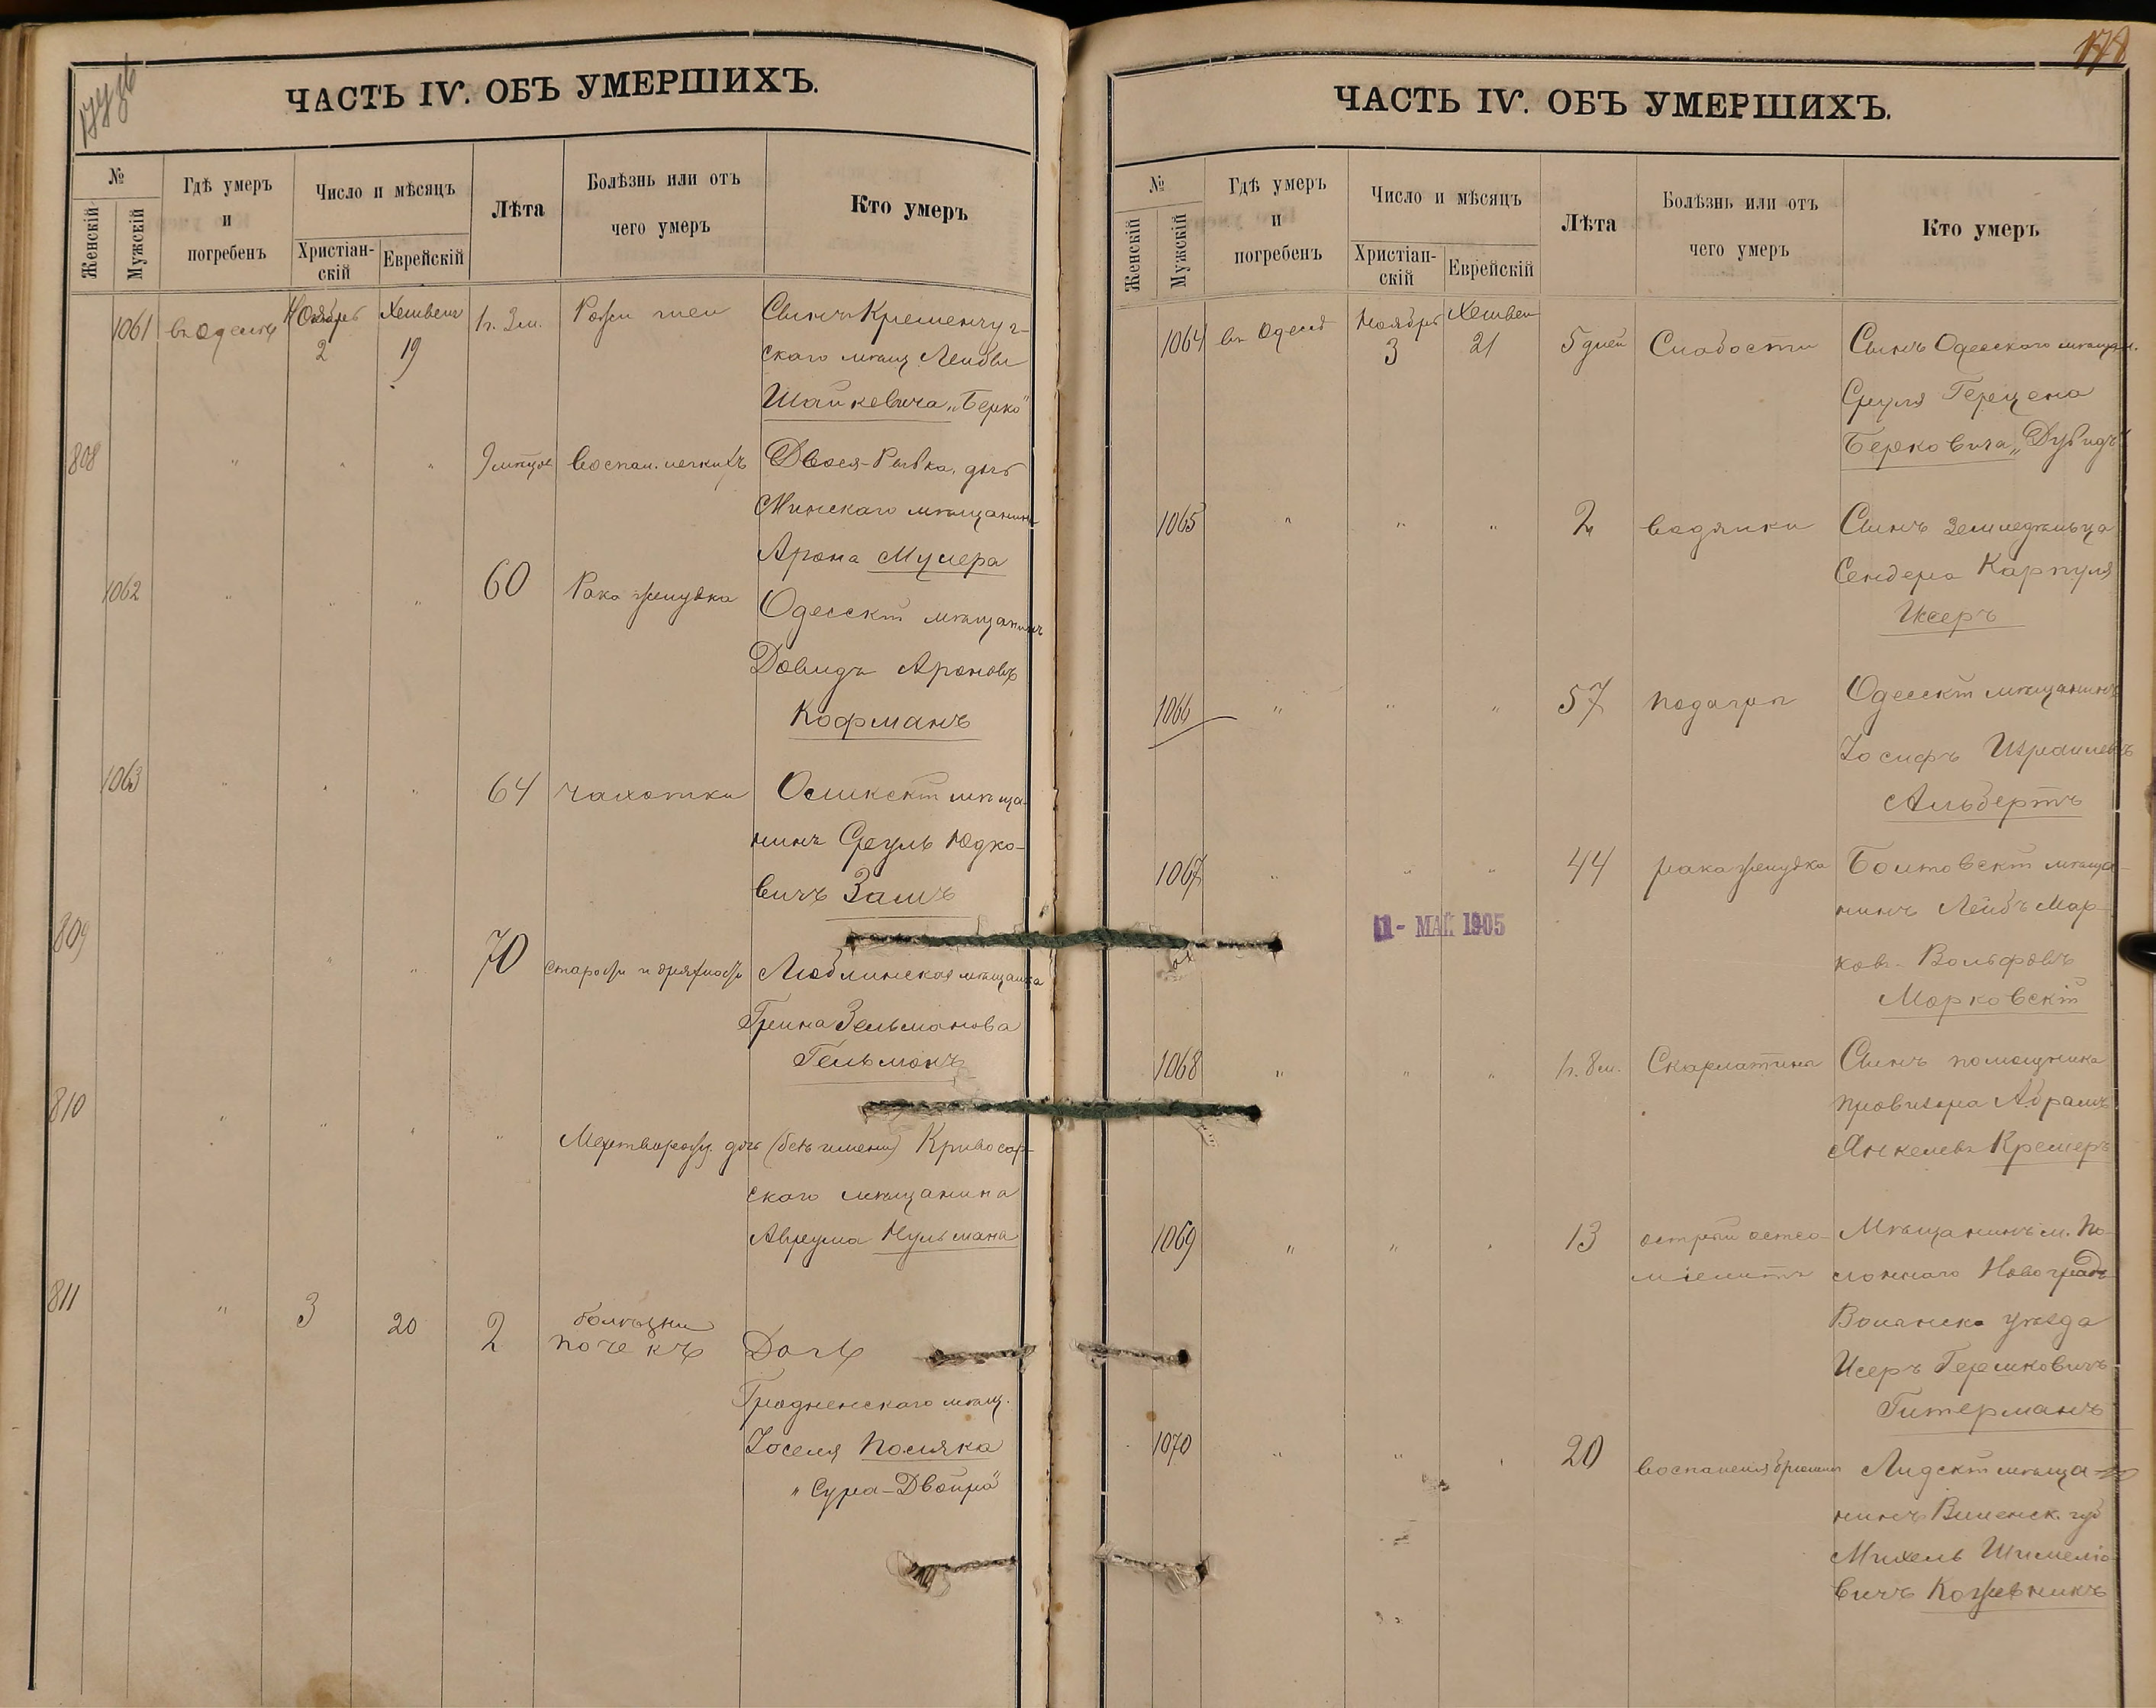 ЧАСТЬ IV. ОБЪ УМЕРШИХЪ.
№
Женскій
Мужскій
Гдѣ умеръ
и
погребенъ
Число и мѣсяцъ
Христіан-
скій
Еврейскій
Лѣта
Болѣзнь или отъ
чего умеръ
Кто умеръ
1061 въ Одессѣ Ноябрь Хешвенъ 1 г. 3 м. Рожи шеи Сынъ Кременчуг-
2 19 скаго мѣщ Лейбы
Шайкевича „Берко"
808 " " " воспал. легкихъ Двося-Рывка, дочь
Минскаго мѣщанина
Арона
1062 " " " 60 Рака желудка Одесскій мѣщанинъ
Довидъ Ароновъ
Кофманъ
1063 " " " 64 чахотки мѣща-
нинъ Сруль Юдко-
вичъ Замъ
809 " " " 70 старости и дряхлости Люблинская мѣщанка
Зельманова
Гельманъ
810 " " " " Мертворожд. дочь (безъ имени)
скаго мѣщанина
Аврума Нульмана
811 " 3 20 2 болѣзни
почекъ Дочь
Гродненскаго мѣщ.
Іоселя Поляка
„Сура-Двойра"
178
ЧАСТЬ IV. ОБЪ УМЕРШИХЪ.
№
Женскій
Мужскій
Гдѣ умеръ
и
погребенъ
Число и мѣсяцъ
Христіан-
скій
Еврейскій
Лѣта
Болѣзнь или отъ
чего умеръ
Кто умеръ
1064 въ Одессѣ Ноябрь Хешвен 5 дней Слабости Сынъ Одесскаго мѣщан.
3 21 Сруля Герцена
Берковича „Дувидъ"
1065 " " " 2 водянки Сынъ земледѣльца
Сендера Карпуля
Иксеръ
1066 " " " 57 подагры Одесскій мѣщанинъ
Іосифъ Израилевъ
Альбертъ
1067 " " " 44 рака желудка Балтовскій мѣща-
нинъ Лейбъ Мар-
ков- Вольфовъ
Марковскій
11- МАЙ 1905
1068 " " " 1 г. 8 м. Скарлатины Сынъ помощника
провизора Абрамъ
Янкелевъ Кремеръ
1069 " " " 13 острый остео- Мѣщанинъ м. По-
міелитъ лоннаго Новоградъ
Волынск уѣзда
Исеръ Гершковичъ
Гитерманъ
1070 " " " 20 воспаленія брюшины Лидскій мѣща-
нинъ Виленск. губ
Михель Шмелю-
вичъ Кожевникъ